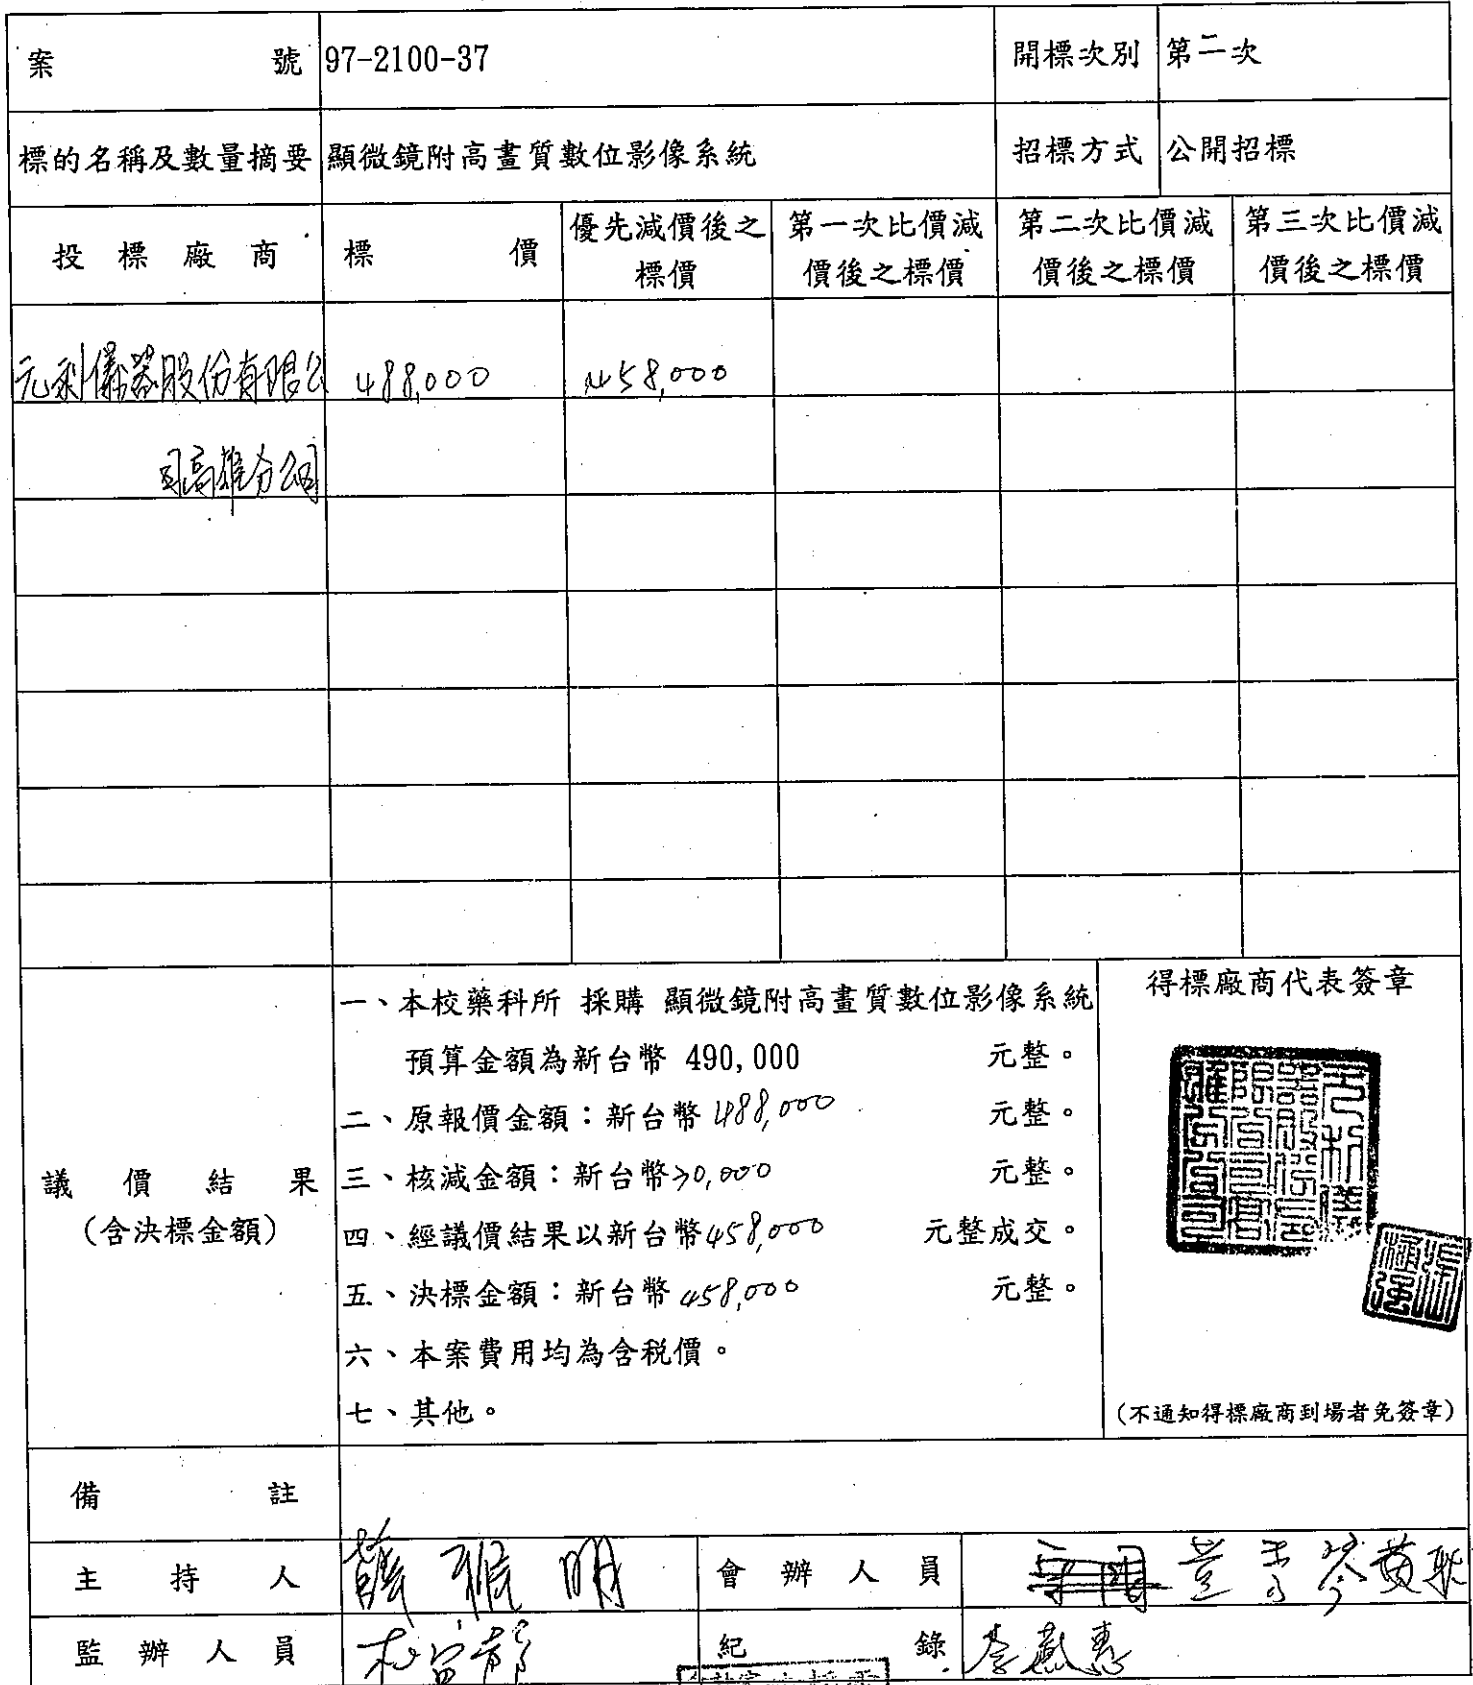 案號 97-2100-37 開標次別 第二次
標的名稱及數量摘要 顯微鏡附高畫質數位影像系統 招標方式 公開招標
投標廠商 標價 優先減價後之標價 第一次比價減價後之標價 第二次比價減價後之標價 第三次比價減價後之標價
元利儀器股份有限公 488,000 458,000
司高雄分公司
議價結果
(含決標金額)
一、本校藥科所 採購 顯微鏡附高畫質數位影像系統
預算金額為新台幣 490,000 元整。
二、原報價金額：新台幣 488,000 元整。
三、核減金額：新台幣30,000 元整。
四、經議價結果以新台幣458,000 元整成交。
五、決標金額：新台幣 458,000 元整。
六、本案費用均為含稅價。
七、其他。
得標廠商代表簽章
(不通知得標廠商到場者免簽章)
備註
主持人 會辦人員
監辦人員 紀錄